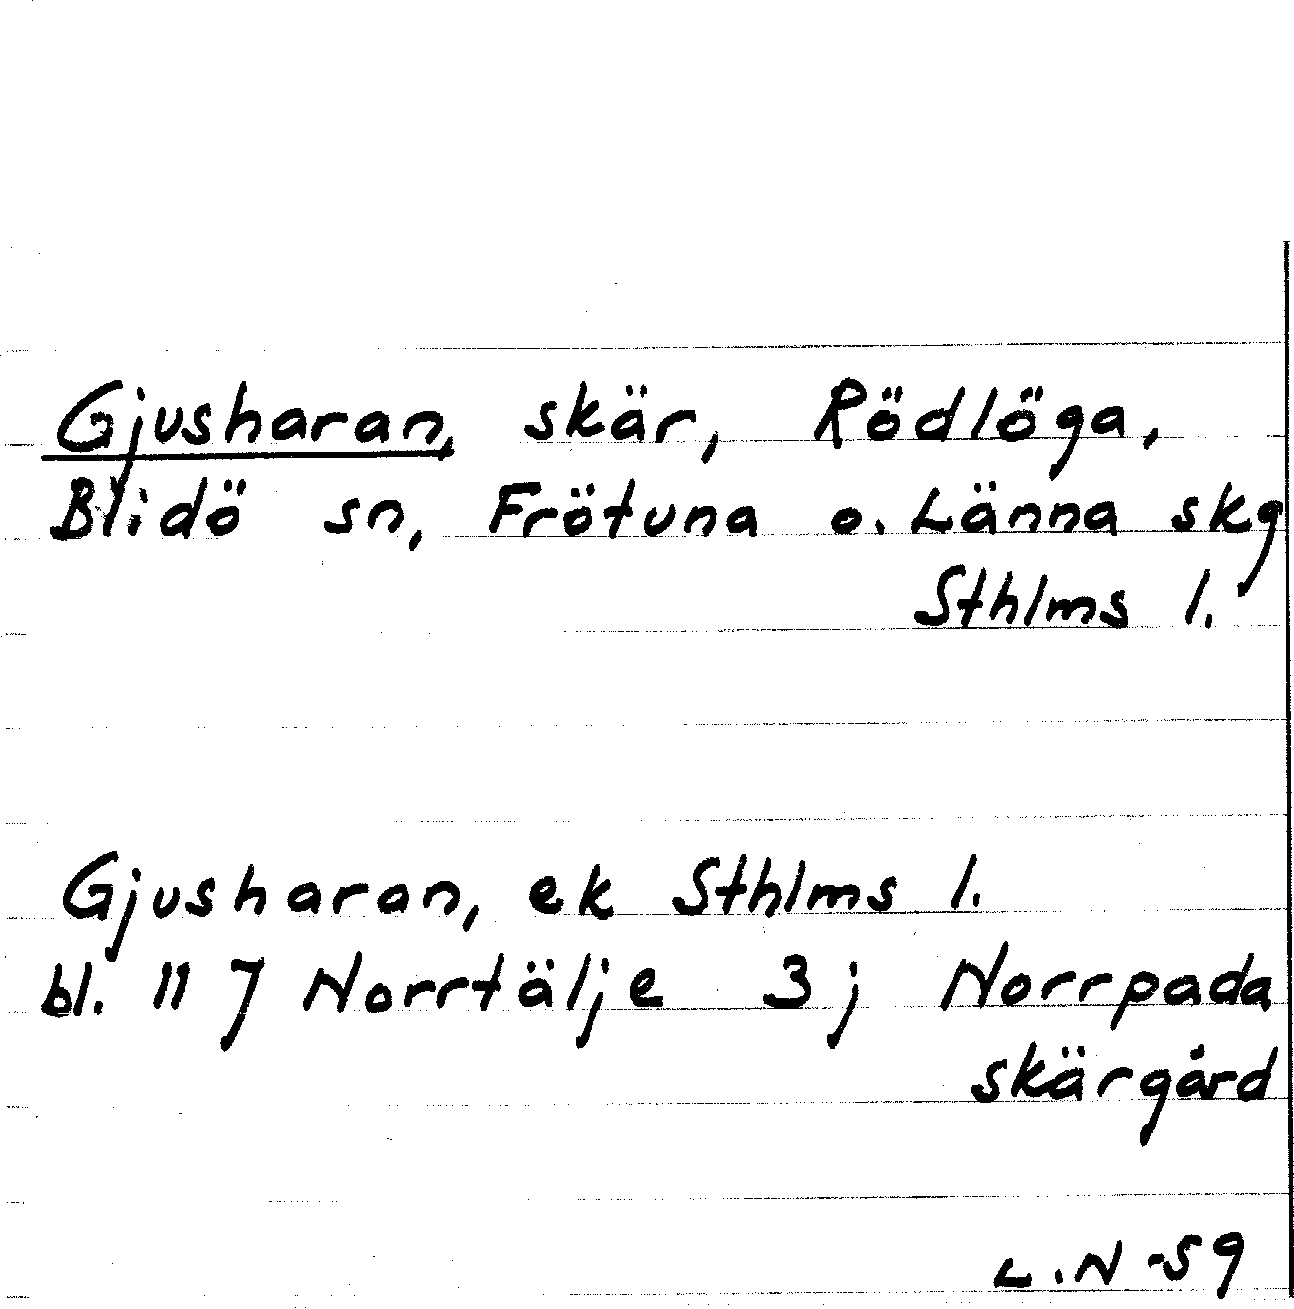 Gjusharan, skär, Rödlöga,
Blidö sn, Frötuna o. Länna skg
Sthlms l.
Gjusharan, ek Sthlms l.
bl. 11 J Norrtälje 3 j Norrpada
skärgård
L.N -59